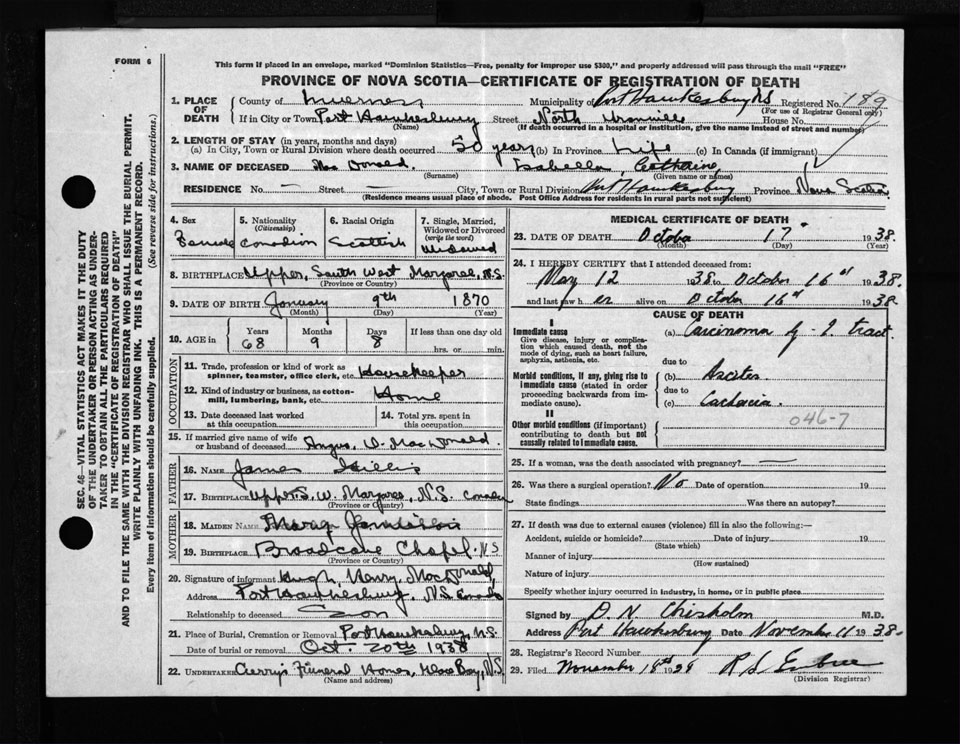 FORM 6
This form if placed in an envelope, marked "Dominion Statistics—Free, penalty for improper use $300," and properly addressed will pass through the mail "FREE"
PROVINCE OF NOVA SCOTIA—CERTIFICATE OF REGISTRATION OF DEATH
1. PLACE OF DEATH
County of Inverness Municipality of Port Hawkesbury NS Registered No. 189
(For use of Registrar General only)
If in City or Town Port Hawkesbury Street North House No.
(Name) (If death occurred in a hospital or institution, give the name instead of street and number)
2. LENGTH OF STAY (in years, months and days)
(a) In City, Town or Rural Division where death occurred 50 years (b) In Province Life (c) In Canada (if immigrant)
3. NAME OF DECEASED Isabella Catharine
(Surname) (Given name or names)
RESIDENCE No. — Street — City, Town or Rural Division Port Hawkesbury Province Nova Scotia
(Residence means usual place of abode. Post Office Address for residents in rural parts not sufficient)
4. Sex Female
5. Nationality (Citizenship) Canadian
6. Racial Origin Scottish
7. Single, Married, Widowed or Divorced (write the word) Widowed
8. BIRTHPLACE Upper South West Margaree, N.S.
(Province or Country)
9. DATE OF BIRTH January 9th 1870
(Month) (Day) (Year)
10. AGE in Years 68 Months 9 Days 8 If less than one day old hrs. or min.
OCCUPATION
11. Trade, profession or kind of work as spinner, teamster, office clerk, etc. Housekeeper
12. Kind of industry or business, as cotton-mill, lumbering, bank, etc. Home
13. Date deceased last worked at this occupation
14. Total yrs. spent in this occupation
15. If married give name of wife or husband of deceased Angus D. MacDonald
FATHER
16. NAME James Gillis
17. BIRTHPLACE Upper S. W. Margaree, N.S.
(Province or Country)
MOTHER
18. MAIDEN NAME Mary
19. BIRTHPLACE Broadcove Chapel NS
(Province or Country)
20. Signature of informant Hugh Henry MacDonald
Address Port Hawkesbury, NS Canada
Relationship to deceased Son
21. Place of Burial, Cremation or Removal Port Hawkesbury, N.S.
Date of burial or removal Oct. 20th 1938
22. UNDERTAKER Curry's Funeral Home, Glace Bay, N.S.
(Name and address)
MEDICAL CERTIFICATE OF DEATH
23. DATE OF DEATH October 17 1938.
(Month) (Day) (Year)
24. I HEREBY CERTIFY that I attended deceased from:
May 12 1938 to October 16 1938.
and last saw her alive on October 16 1938
CAUSE OF DEATH
I
Immediate cause
Give disease, injury or complication which caused death, not the mode of dying, such as heart failure, asphyxia, asthenia, etc.
(a) Carcinoma g-I. tract
due to
Morbid conditions, if any, giving rise to immediate cause (stated in order proceeding backwards from immediate cause).
(b) Ascites
due to
(c) Cachexia.
II
Other morbid conditions (if important) contributing to death but not causally related to immediate cause.
046-7
25. If a woman, was the death associated with pregnancy? —
26. Was there a surgical operation? No Date of operation 19
State findings Was there an autopsy?
27. If death was due to external causes (violence) fill in also the following:—
Accident, suicide or homicide? Date of injury 19
(State which)
Manner of injury
(How sustained)
Nature of injury
Specify whether injury occurred in industry, in home, or in public place
Signed by D. N. Chisholm M.D.
Address Port Hawkesbury Date November 11 1938.
28. Registrar's Record Number
29. Filed November 18th 1938 R S Embree
(Division Registrar)
SEC. 46—VITAL STATISTICS ACT MAKES IT THE DUTY
OF THE UNDERTAKER OR PERSON ACTING AS UNDER-
TAKER TO OBTAIN ALL THE PARTICULARS REQUIRED
IN THE "CERTIFICATE OF REGISTRATION OF DEATH"
AND TO FILE THE SAME WITH THE DIVISION REGISTRAR WHO SHALL ISSUE THE BURIAL PERMIT.
WRITE PLAINLY WITH UNFADING INK. THIS IS A PERMANENT RECORD.
Every item of information should be carefully supplied. (See reverse side for instructions.)